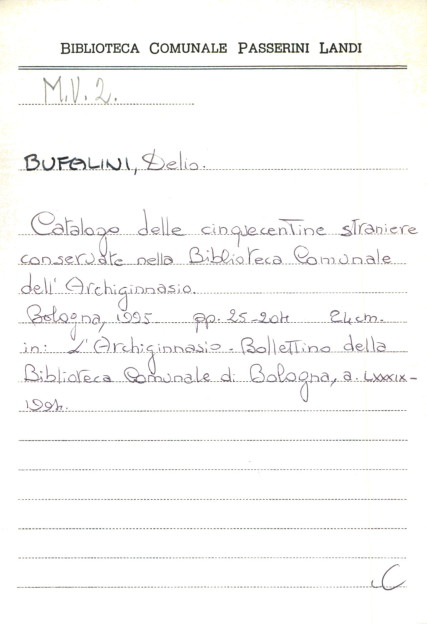 BIBLIOTECA COMUNALE PASSERINI LANDI
M.V.2.
BUFALINI, Delio.
Catalogo delle cinquecentine straniere
conservate nella Biblioteca Comunale
dell'Archiginnasio.
Bologna, 1995 pp. 25-204 24cm.
in: L'Archiginnasio - Bollettino della
Biblioteca Comunale di Bologna, a. LXXXIX-
1994.